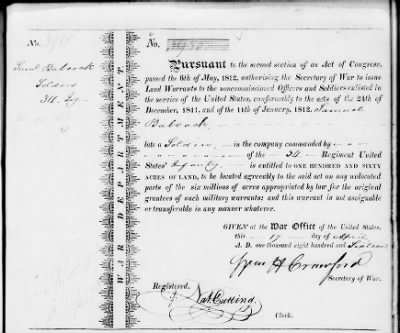 No. 3950
No. 3950
Samuel Babcock
Soldier
34. Infy
WAR DEPARTMENT.
Pursuant to the second section of an Act of Congress,
passed the 6th of May, 1812, authorising the Secretary of War to issue
Land Warrants to the noncommissioned Officers and Soldiers enlisted
in the service of the United States, conformably to the acts of the 24th of
December, 1811, and of the 11th of January, 1812. Samuel
Babcock
late a Soldier in the company commanded by
of the 34 Regiment United
States' Infantry is entitled to ONE HUNDRED AND SIXTY
ACRES OF LAND, to be located agreeably to the said act on any unlocated
parts of the six millions of acres appropriated by law for the original
grantees of such military warrants; and this warrant is not assignable
or transferable in any manner whatever.
GIVEN at the War Office of the United States,
this 17 day of April
A. D. one thousand eight hundred and Sixteen
Wm H Crawford
Secretary of War.
Registered.
Nat. Cutting
Clerk.